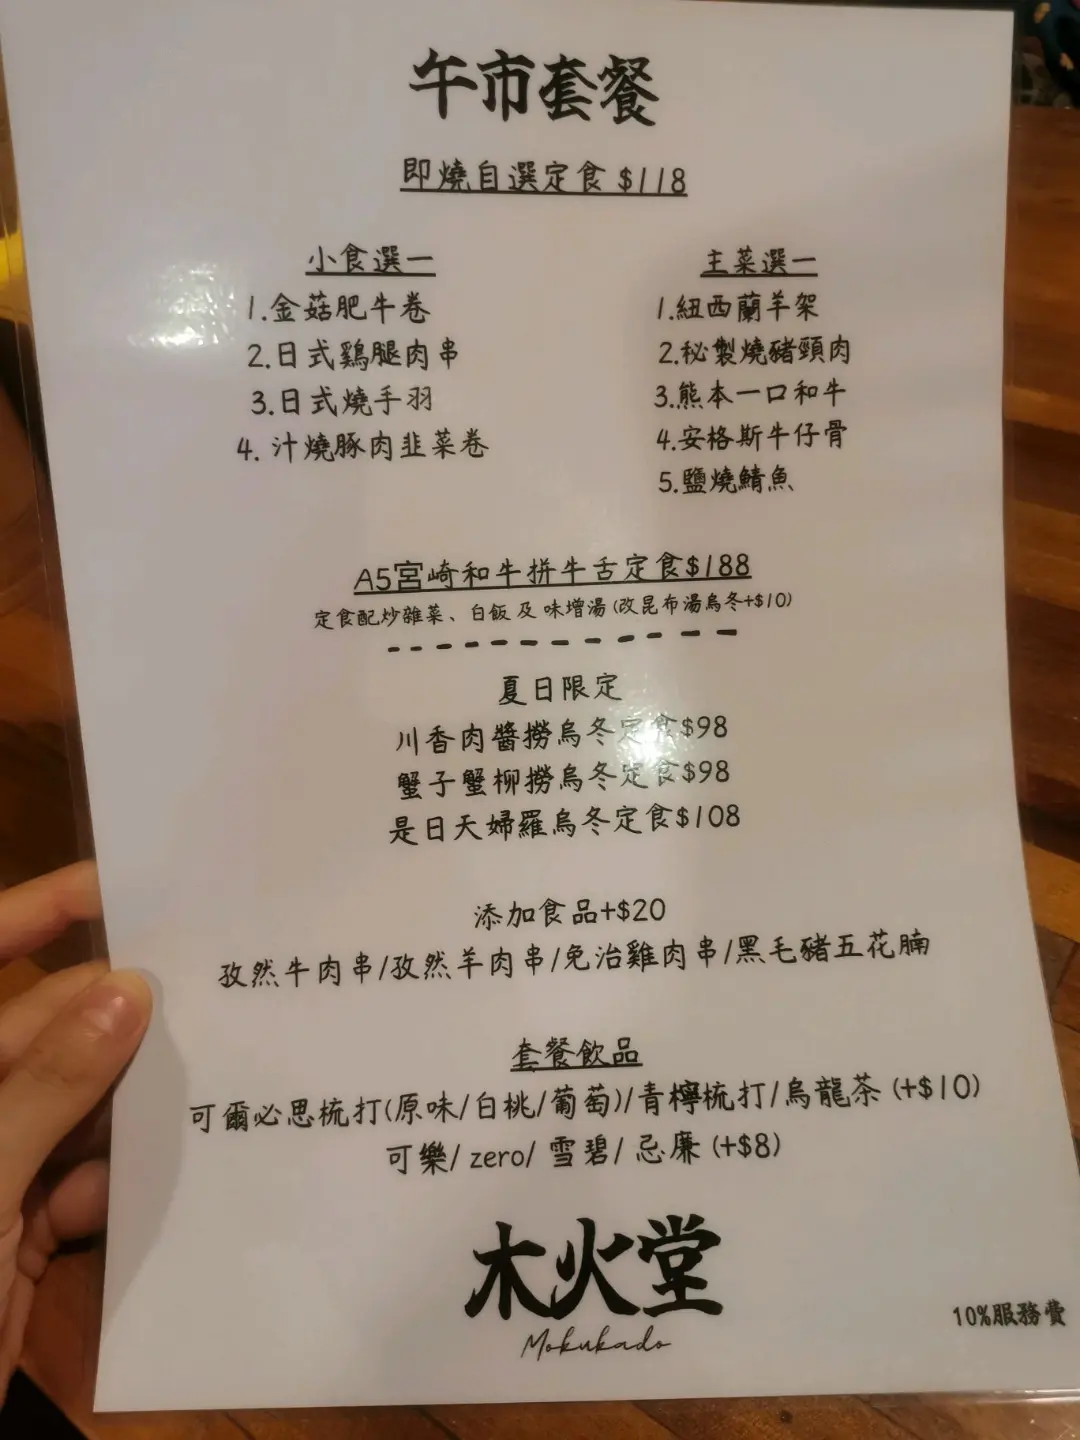 午市套餐
即燒自選定食 $118
小食選一
1.金菇肥牛卷
2.日式鷄腿肉串
3.日式燒手羽
4. 汁燒豚肉韭菜卷
主菜選一
1.紐西蘭羊架
2.秘製燒豬頸肉
3.熊本一口和牛
4.安格斯牛仔骨
5.鹽燒鯖魚
A5宮崎和牛拼牛舌定食$188
定食配炒雜菜、白飯 及 味增湯 (改昆布湯烏冬+$10)
夏日限定
川香肉醬撈烏冬定食$98
蟹子蟹柳撈烏冬定食$98
是日天婦羅烏冬定食$108
添加食品+$20
孜然牛肉串/孜然羊肉串/免治雞肉串/黑毛豬五花腩
套餐飲品
可爾必思梳打(原味/白桃/葡萄)/青檸梳打/烏龍茶 (+$10)
可樂/ zero/ 雪碧/ 忌廉 (+$8)
木火堂
Mokukado
10%服務費